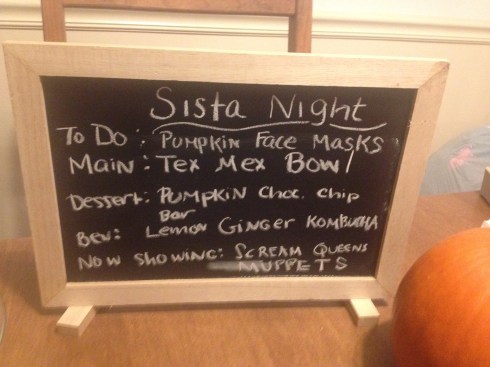 Sista Night
To Do: Pumpkin Face Masks
Main: Tex Mex Bowl
Dessert: Pumpkin Choc. Chip
Bar
Bev: Lemon Ginger Kombucha
Now Showing: Scream Queens
Muppets